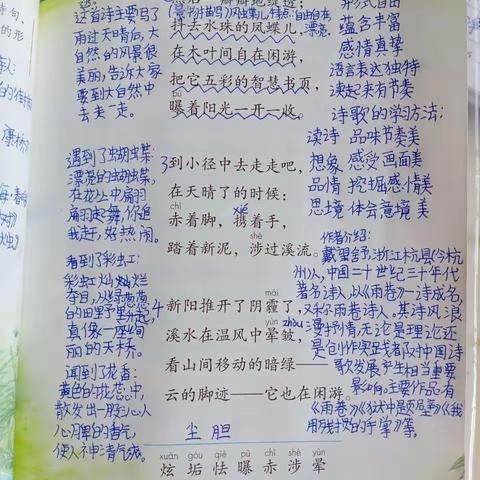 这首诗主要写了
雨过天晴后,大
自然的风景很
美丽,告诉大家
要到大自然中
去走一走。
抖去水珠的凤蝶儿,
在木叶间自在闲游,
把它五彩的智慧书页,
曝着阳光一开一收。
形式自由
蕴含丰富
感情真挚
语言表达独特
读起来有节奏
诗歌的学习方法:
读诗 品味节奏美
想象 感受画面美
品情 挖掘感情美
思境 体会意境美
遇到了蝴蝶:
漂亮的蝴蝶,
在花丛中翩翩
翩翩起舞,你追
我赶,好热闹。
3到小径中去走走吧,
在天晴了的时候:
chì
xié
赤着脚,携着手,
shè
踏着新泥,涉过溪流。
作者介绍:
戴望舒,浙江杭县(今杭
州)人,中国二十世纪三十年代
著名诗人,以《雨巷》一诗成名,
又称雨巷诗人。其诗风浪
漫抒情,无论是理论还
是创作实践,都对中国诗
歌发展产生相当重要
影响。主要作品有
《雨巷》《狱中题壁》《我
用残损的手掌》等。
看到了彩虹:
彩虹灿灿烂
夺目,从绿葱葱
的田野里升起,
真像一座绚
丽的天桥。
mái
4新阳推开了阴霾了,
yùn zhòu
溪水在温风中晕皱,
看山间移动的暗绿——
云的脚迹——它也在闲游。
闻到了花香:
黄色的花蕊中,
散发出一股沁人
心脾的香气,
使人神清气爽。
尘 胆
xuàn gòu qiè pù chì shè yùn
炫 垢 怯 曝 赤 涉 晕